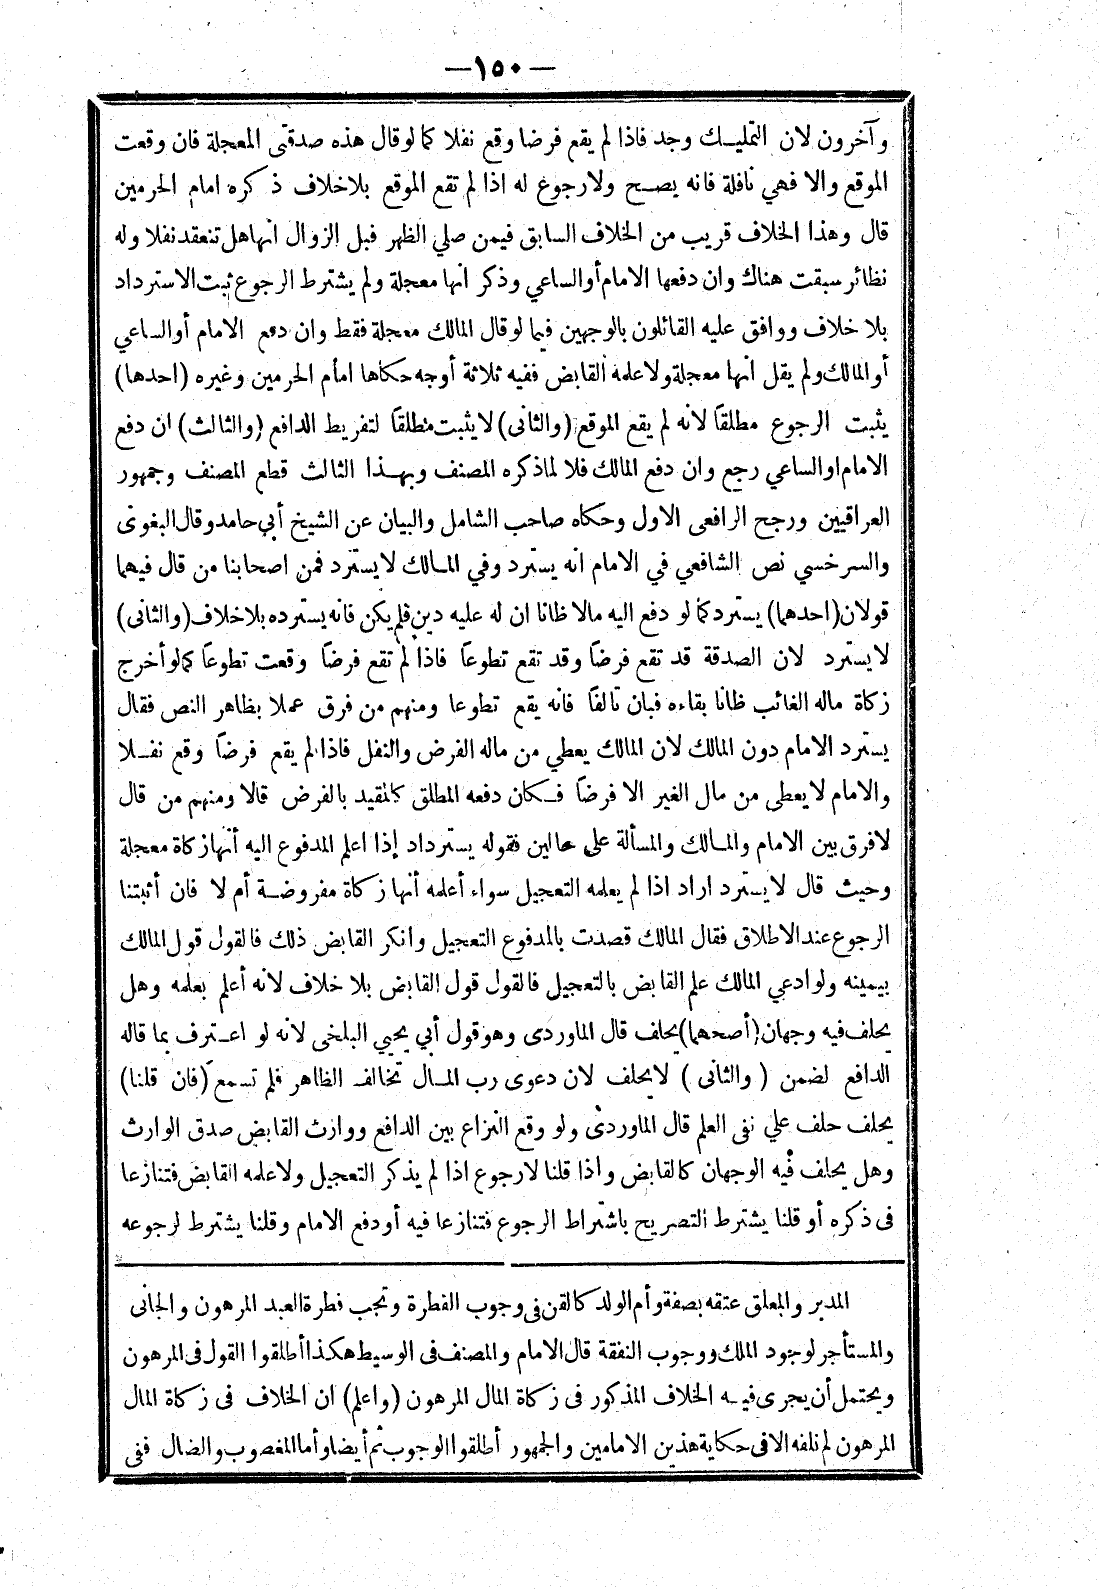 — ١٥٠ —
وآخرون لان التمليك وجد فاذا لم يقع فرضا وقع نفلا كما لو قال هذه صدقتى المعجلة فان وقعت
الموقع والا فهي نافلة فانه يصح ولا رجوع له اذا لم تقع الموقع بلا خلاف ذكره امام الحرمين
قال وهذا الخلاف قريب من الخلاف السابق فيمن صلي الظهر قبل الزوال انها هل تنعقد نفلا وله
نظائر سبقت هناك وان دفعها الامام أو الساعي وذكر انها معجلة ولم يشترط الرجوع ثبت الاسترداد
بلا خلاف ووافق عليه القائلون بالوجهين فيما لو قال المالك معجلة فقط وان دفع الامام أو الساعي
أو المالك ولم يقل انها معجلة ولا علمه القابض ففيه ثلاثة أوجه حكاها امام الحرمين وغيره (احدها)
يثبت الرجوع مطلقا لانه لم يقع الموقع (والثانى) لا يثبت مطلقا لتفريط الدافع (والثالث) ان دفع
الامام او الساعي رجع وان دفع المالك فلا لما ذكره المصنف وبهذا الثالث قطع المصنف وجمهور
العراقيين ورجح الرافعى الاول وحكاه صاحب الشامل والبيان عن الشيخ أبي حامد وقال البغوى
والسرخسي نص الشافعي في الامام انه يسترد وفي المالك لا يسترد فمن اصحابنا من قال فيهما
قولان (احدهما) يسترد كما لو دفع اليه مالا ظانا ان له عليه دين فلم يكن فانه يسترده بلا خلاف (والثانى)
لا يسترد لان الصدقة قد تقع فرضا وقد تقع تطوعا فاذا لم تقع فرضا وقعت تطوعا كما لو أخرج
زكاة ماله الغائب ظانا بقاءه فبان تالفا فانه يقع تطوعا ومنهم من فرق عملا بظاهر النص فقال
يسترد الامام دون المالك لان المالك يعطي من ماله الفرض والنفل فاذا لم يقع فرضا وقع نفلا
والامام لا يعطى من مال الغير الا فرضا فكان دفعه المطلق كالمقيد بالفرض قالا ومنهم من قال
لا فرق بين الامام والمالك والمسألة علي حالين فقوله يسترداد إذا اعلم المدفوع اليه أنها زكاة معجلة
وحيث قال لا يسترد اراد اذا لم يعلمه التعجيل سواء أعلمه أنها زكاة مفروضة أم لا فان أثبتنا
الرجوع عند الاطلاق فقال المالك قصدت بالمدفوع التعجيل وانكر القابض ذلك فالقول قول المالك
بيمينه ولو ادعي المالك علم القابض بالتعجيل فالقول قول القابض بلا خلاف لانه أعلم بعلمه وهل
يحلف فيه وجهان (أصحهما) يحلف قال الماوردى وهو قول أبي يحيي البلخى لانه لو اعترف بما قاله
الدافع لضمن (والثانى) لا يحلف لان دعوى رب المال تخالف الظاهر فلم تسمع (فان قلنا)
يحلف حلف علي نفى العلم قال الماوردى ولو وقع النزاع بين الدافع ووارث القابض صدق الوارث
وهل يحلف فيه الوجهان كالقابض واذا قلنا لا رجوع اذا لم يذكر التعجيل ولا علمه القابض فتنازعا
فى ذكره أو قلنا يشترط التصريح باشتراط الرجوع فتنازعا فيه أو دفع الامام وقلنا يشترط لرجوعه
المدبر والمعلق عتقه بصفة وأم الولد كالقن فى وجوب الفطرة وتجب فطرة العبد المرهون والجانى
والمستأجر لوجود الملك ووجوب النفقة قال الامام والمصنف فى الوسيط هكذا أطلقوا القول فى المرهون
ويحتمل أن يجرى فيه الخلاف المذكور فى زكاة المال المرهون (واعلم) ان الخلاف فى زكاة المال
المرهون لم نلفه الا فى حكاية هذين الامامين والجمهور أطلقوا الوجوب ثم أيضا وأما المغصوب والضال ففى